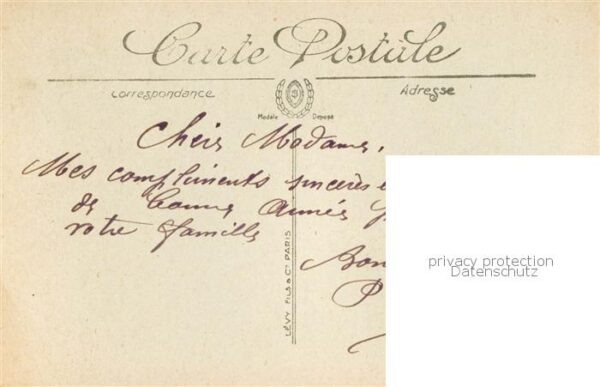 Carte Postale
Correspondance
Adresse
Modèle Déposé
Chère Madame,
Mes compliments sincères e
de bonne Année p
votre famille
Bon
P
LÉVY FILS & Cie PARIS
privacy protection
Datenschutz